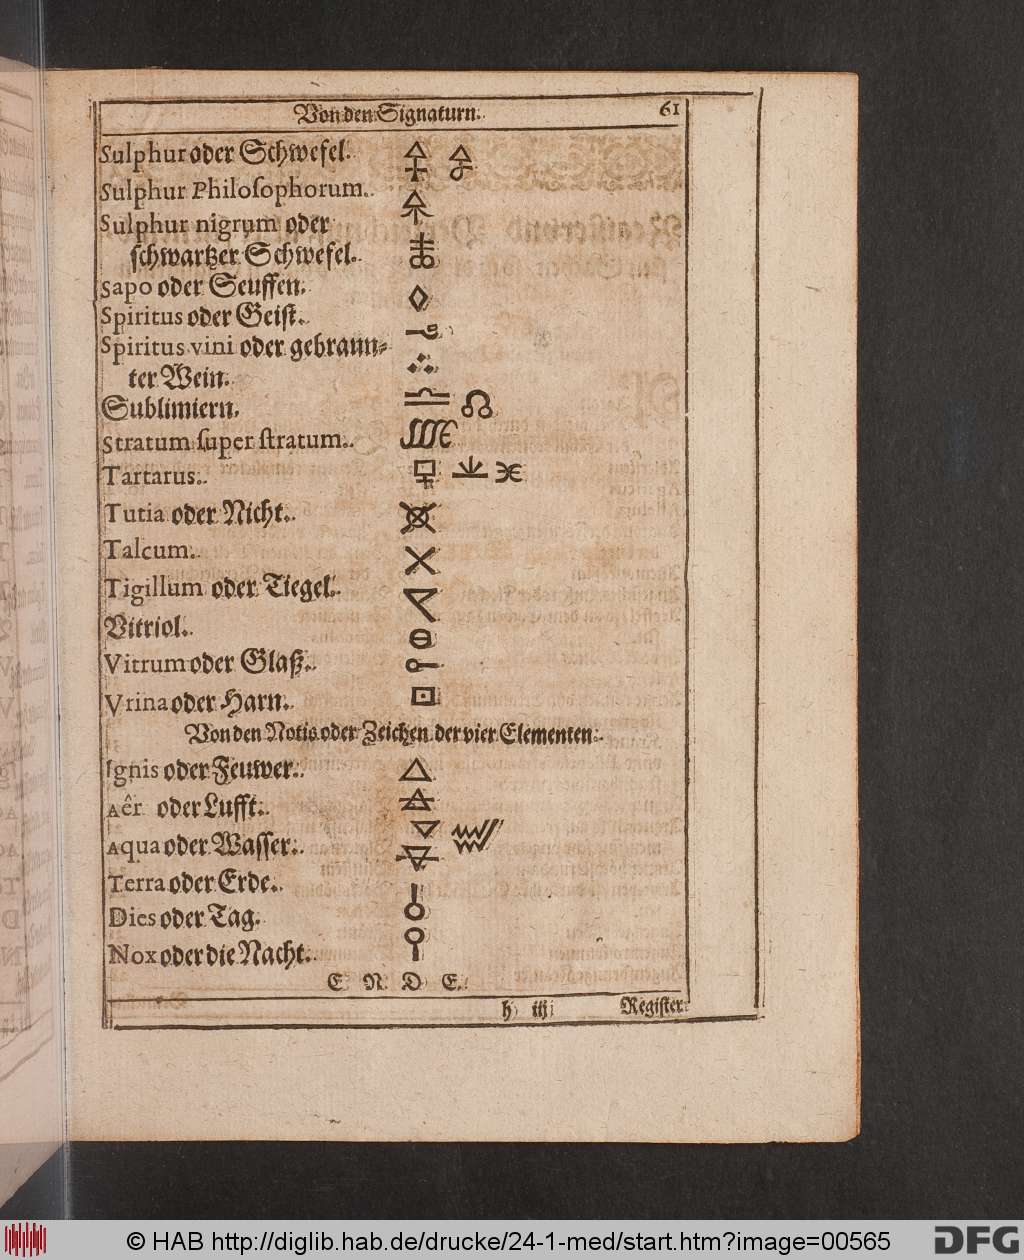 Von den Signaturn. 61
Sulphur oder Schwefel.
Sulphur Philoſophorum.
Sulphur nigrum oder
ſchwartzer Schwefel.
Sapo oder Seuffen.
Spiritus oder Geiſt.
Spiritus vini oder gebrann⸗
ter Wein.
Sublimiern.
Stratum ſuper ſtratum.
Tartarus.
Tutia oder Nicht.
Talcum.
Tigillum oder Tiegel.
Vitriol.
Vitrum oder Glaß.
Vrina oder Harn.
Von den Notis oder Zeichen der vier Elementen.
Ignis oder Feuwer.
Aêr oder Lufft.
Aqua oder Waſſer.
Terra oder Erde.
Dies oder Tag.
Nox oder die Nacht.
E N D E.
h iij Regiſter
© HAB http://diglib.hab.de/drucke/24-1-med/start.htm?image=00565
DFG